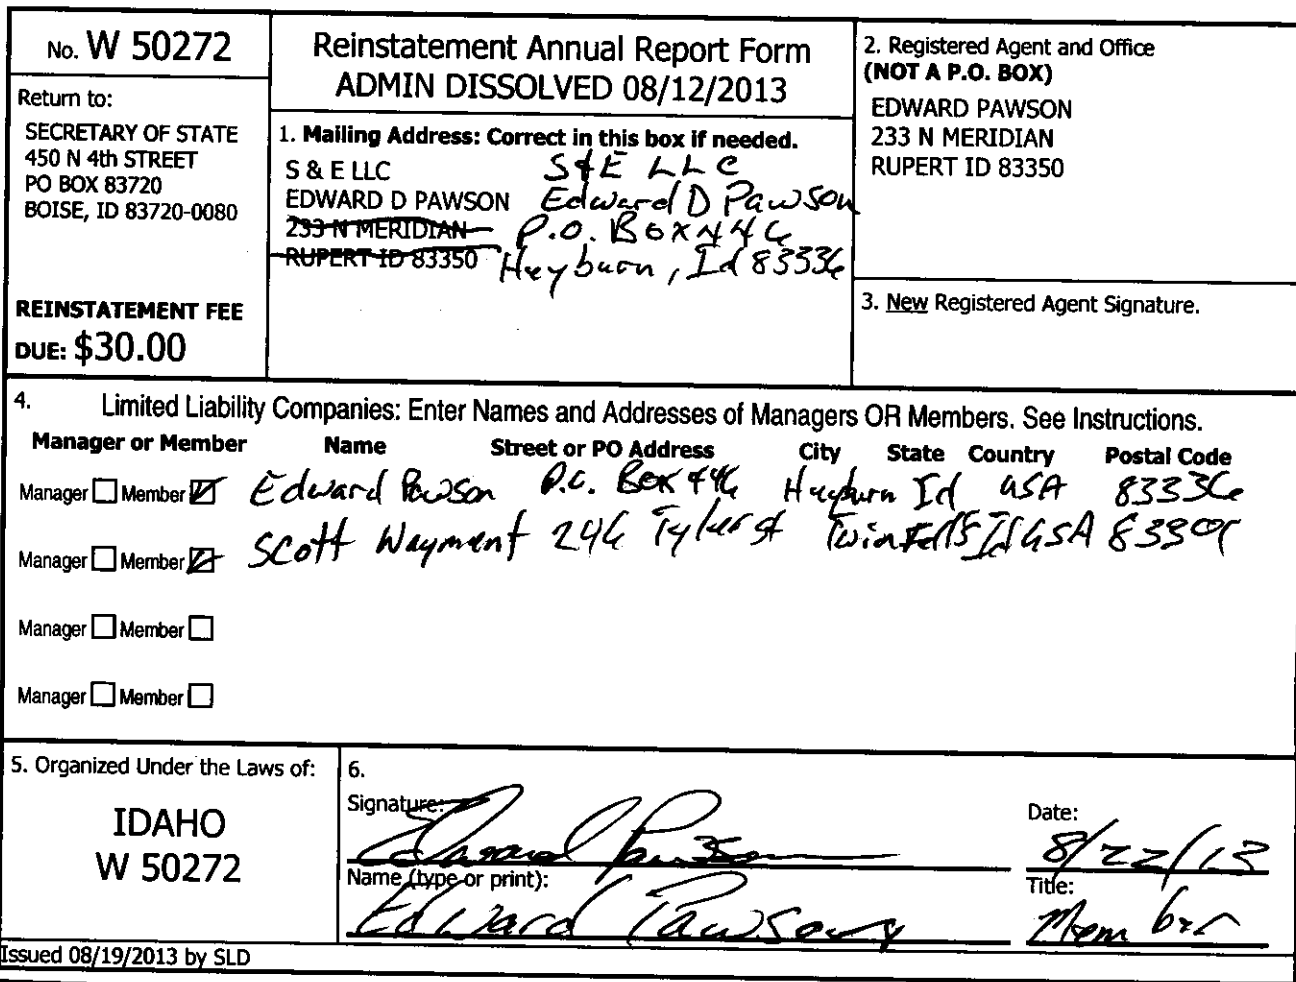 No. W 50272
Return to:
SECRETARY OF STATE
450 N 4th STREET
PO BOX 83720
BOISE, ID 83720-0080
REINSTATEMENT FEE
DUE: $30.00
Reinstatement Annual Report Form
ADMIN DISSOLVED 08/12/2013
1. Mailing Address: Correct in this box if needed.
S & E LLC S & E LLC
EDWARD D PAWSON Edward D Pawson
233 N MERIDIAN P.O. Box 446
RUPERT ID 83350 Heyburn, Id 83336
2. Registered Agent and Office
(NOT A P.O. BOX)
EDWARD PAWSON
233 N MERIDIAN
RUPERT ID 83350
3. New Registered Agent Signature.
4. Limited Liability Companies: Enter Names and Addresses of Managers OR Members. See Instructions.
Manager or Member Name Street or PO Address City State Country Postal Code
Manager Member Edward Pawson P.O. Box 446 Heyburn Id USA 83336
Manager Member Scott Wayment 246 Tyler st Twin Falls Id USA 83301
Manager Member
Manager Member
5. Organized Under the Laws of:
IDAHO
W 50272
6.
Signature: Edward Pawson
Date:
8/22/13
Name (type or print):
Edward Pawson
Title:
Member
Issued 08/19/2013 by SLD